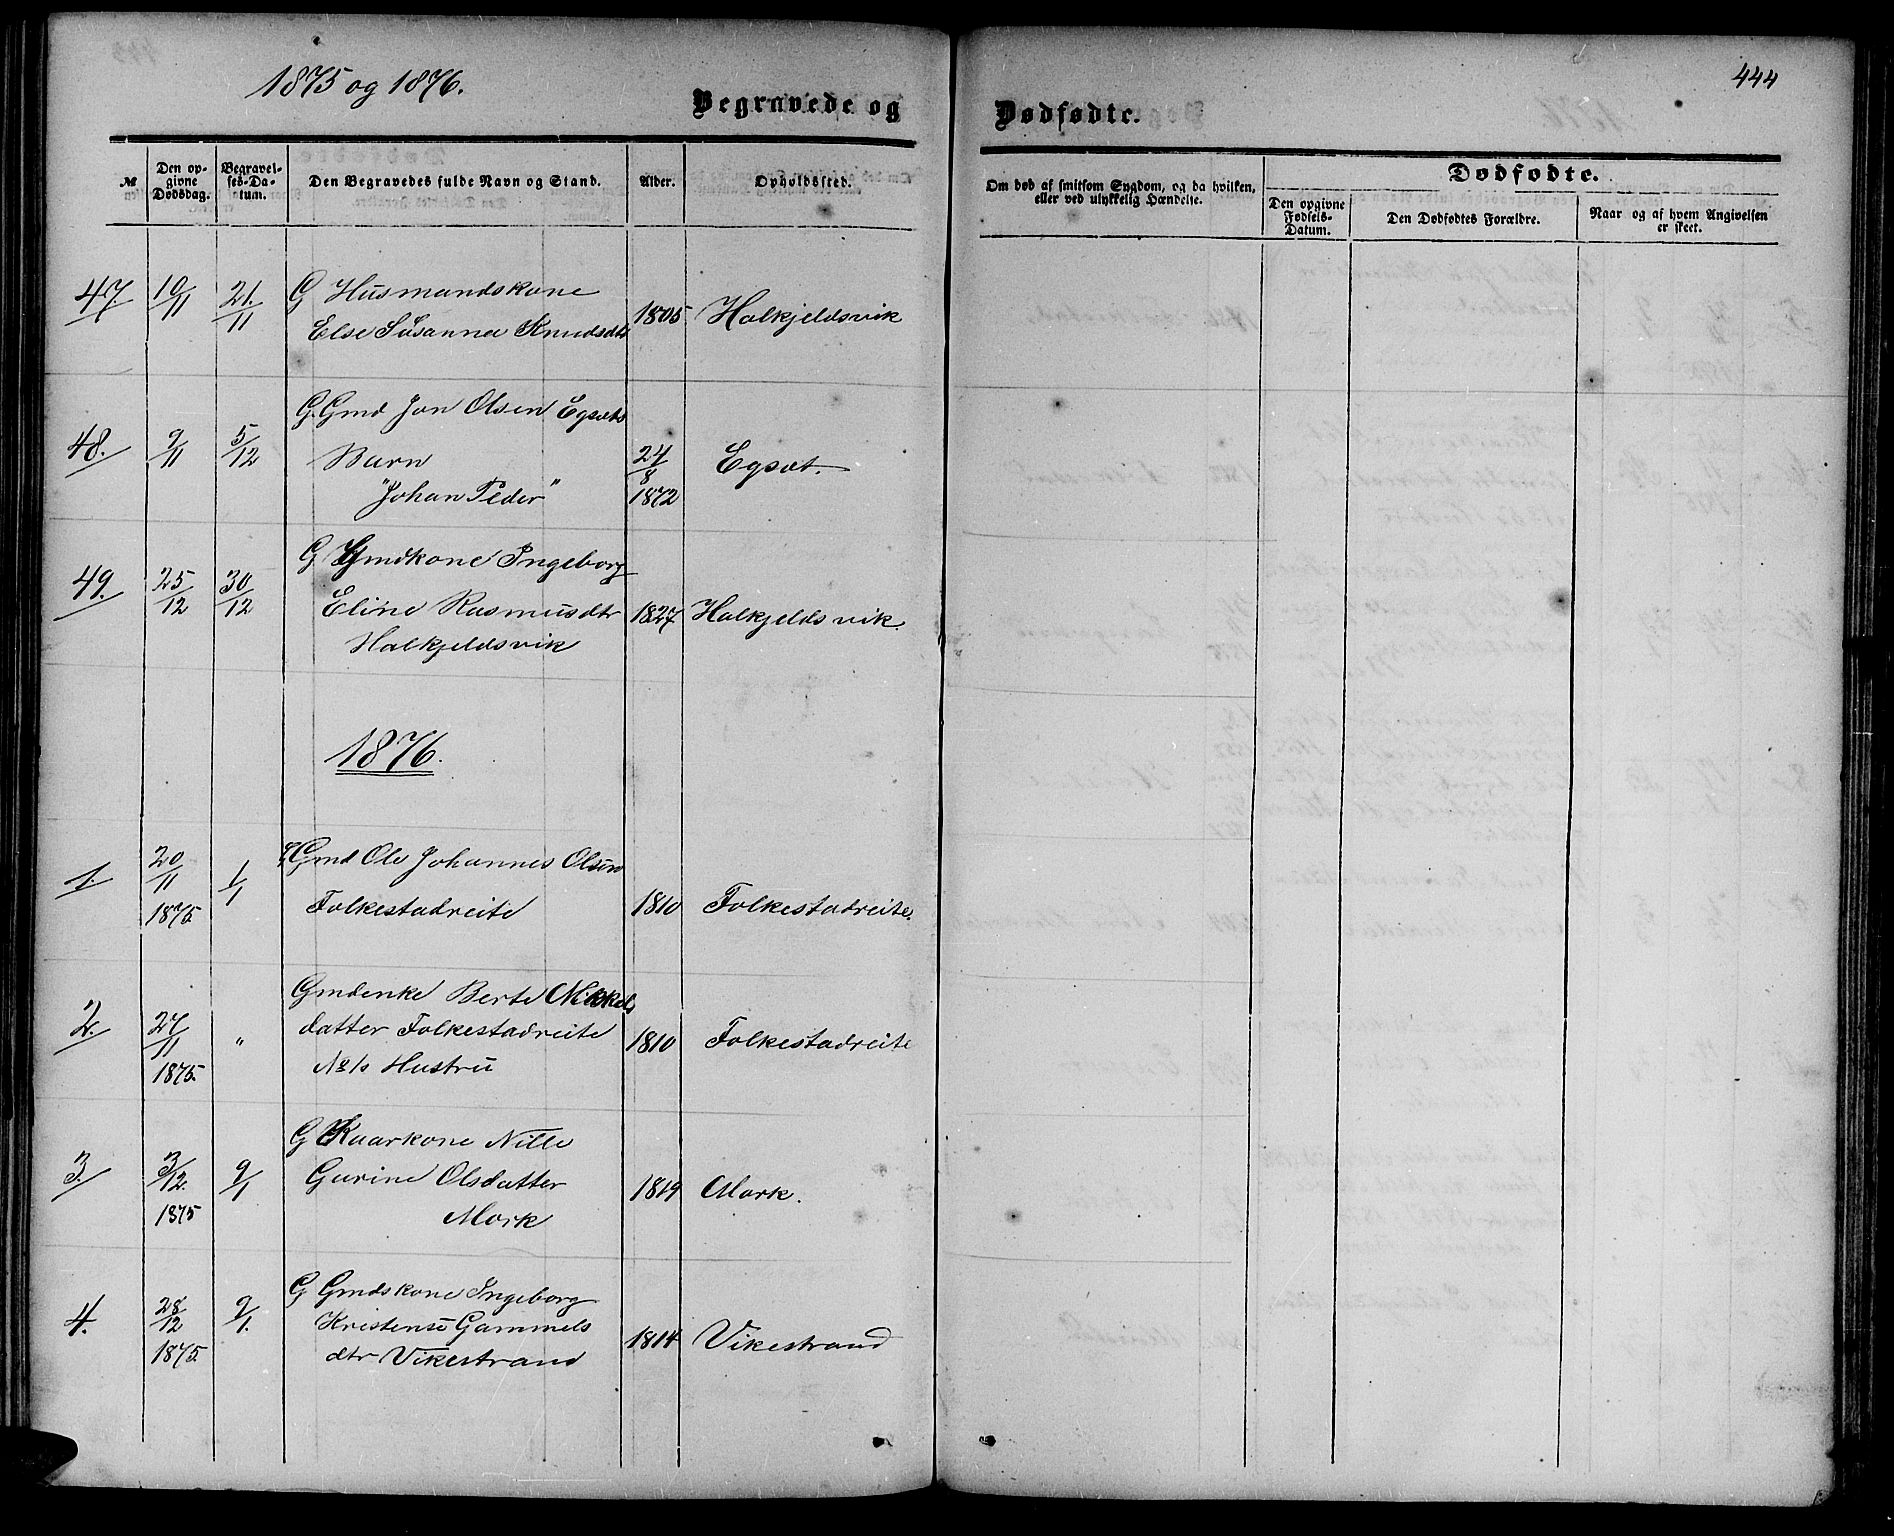 1875 og 1876.
444
Begravede og Dødfødte.
№
Den opgivne Dødsdag.
Begravelses-Datum.
Den Begravedes fulde Navn og Stand.
Alder.
Opholdssted.
Om død af smitsom Sygdom, og da hvilken, eller ved ulykkelig Hændelse.
Dødfødte.
Den opgivne Fødsels-Datum.
Den Dødfødtes Forældre.
Naar og af hvem Angivelsen er skeet.
47. 10/11 21/11 G Husmandskone
Else Susanna Knudsdtr 1805 Halkjeldsvik
48. 9/11 5/12 G. Gmd Jon Olsen Egsæts
Barn
"Johan Peder" 24/8 1872 Egsæt.
49. 25/12 30/12 G Gmdkone Ingeborg
Eline Rasmusdtr 1827 Halkjeldsvik.
Halkjeldsvik
1876.
1. 20/11 1875 1/1 Gmd Ole Johannes Olsen
Folkestadreite 1810 Folkestadreite.
2. 27/11 1875. " Gmdenke Berte Nikkels
datter Folkestadreite 1810 Folkestadreite
No 1s Hustru
3. 3/12. 1875 9/1 G Kaarkone Nille
Gurine Olsdatter 1819 Mork.
Mork
4. 28/12 1875. 9/1. G Gmdskone Ingeborg
Kristense Gammels
dtr Vikestrand 1814 Vikestrand